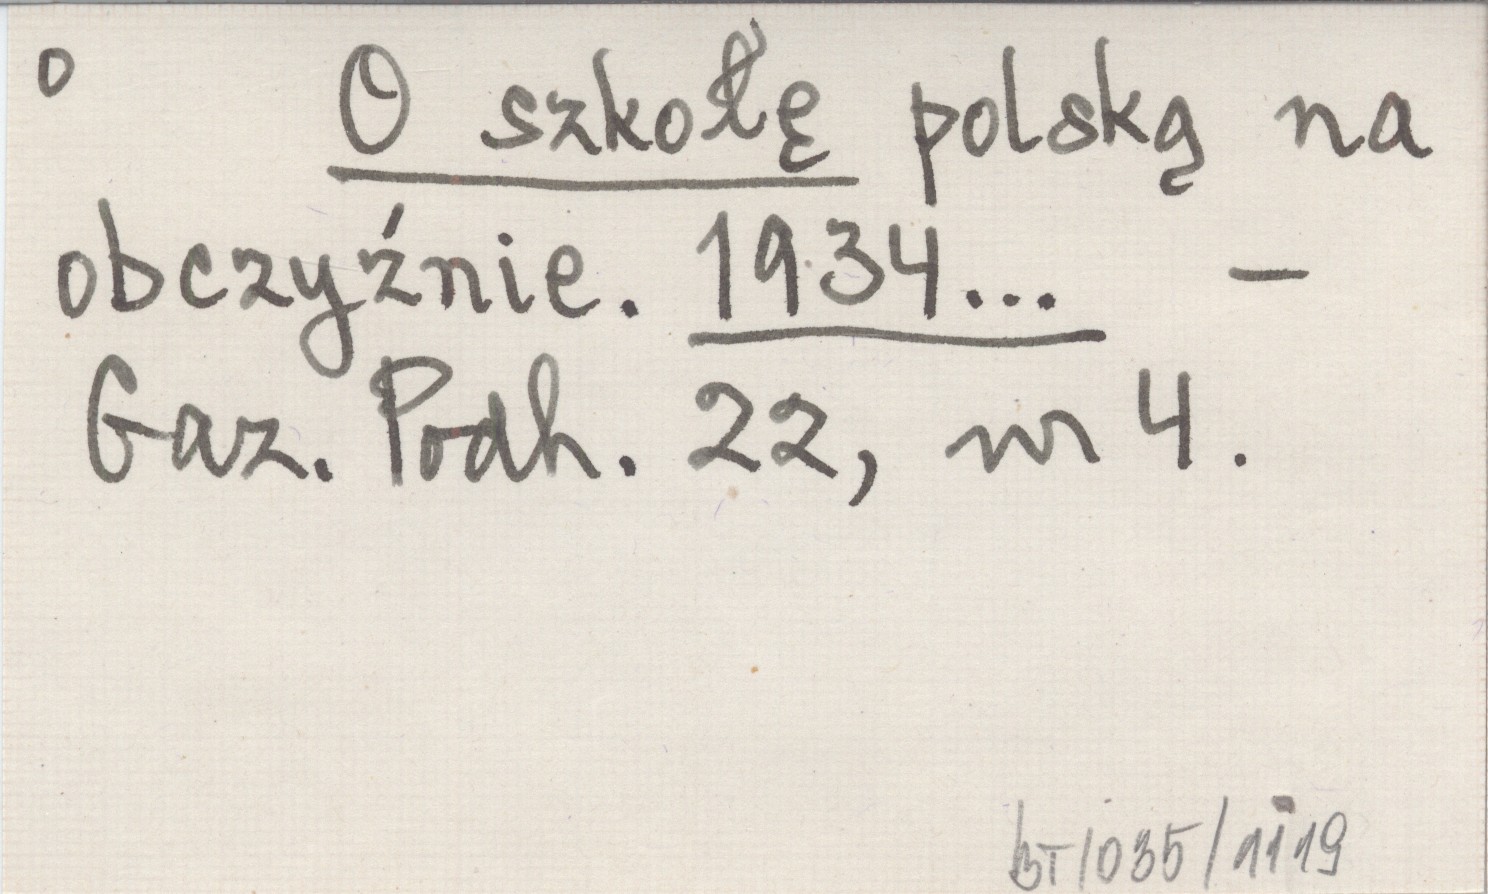 O
O szkołę polską na
obczyźnie. 1934... –
Gaz. Podh. 22, nr 4.
BT/035/1119